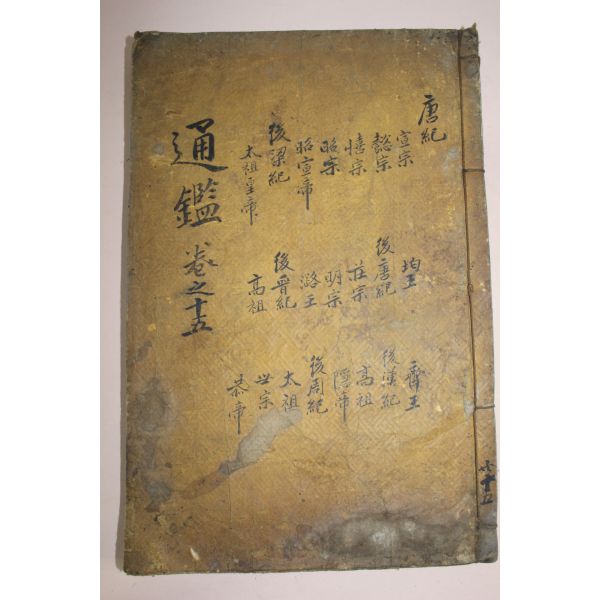 通鑑 卷之十五
唐紀
宣宗
懿宗
僖宗
昭宗
昭宣帝
後梁紀
太祖皇帝
均王
後唐紀
莊宗
明宗
潞王
後晋紀
高祖
齊王
後漢紀
高祖
隱帝
後周紀
太祖
世宗
恭帝
共十五